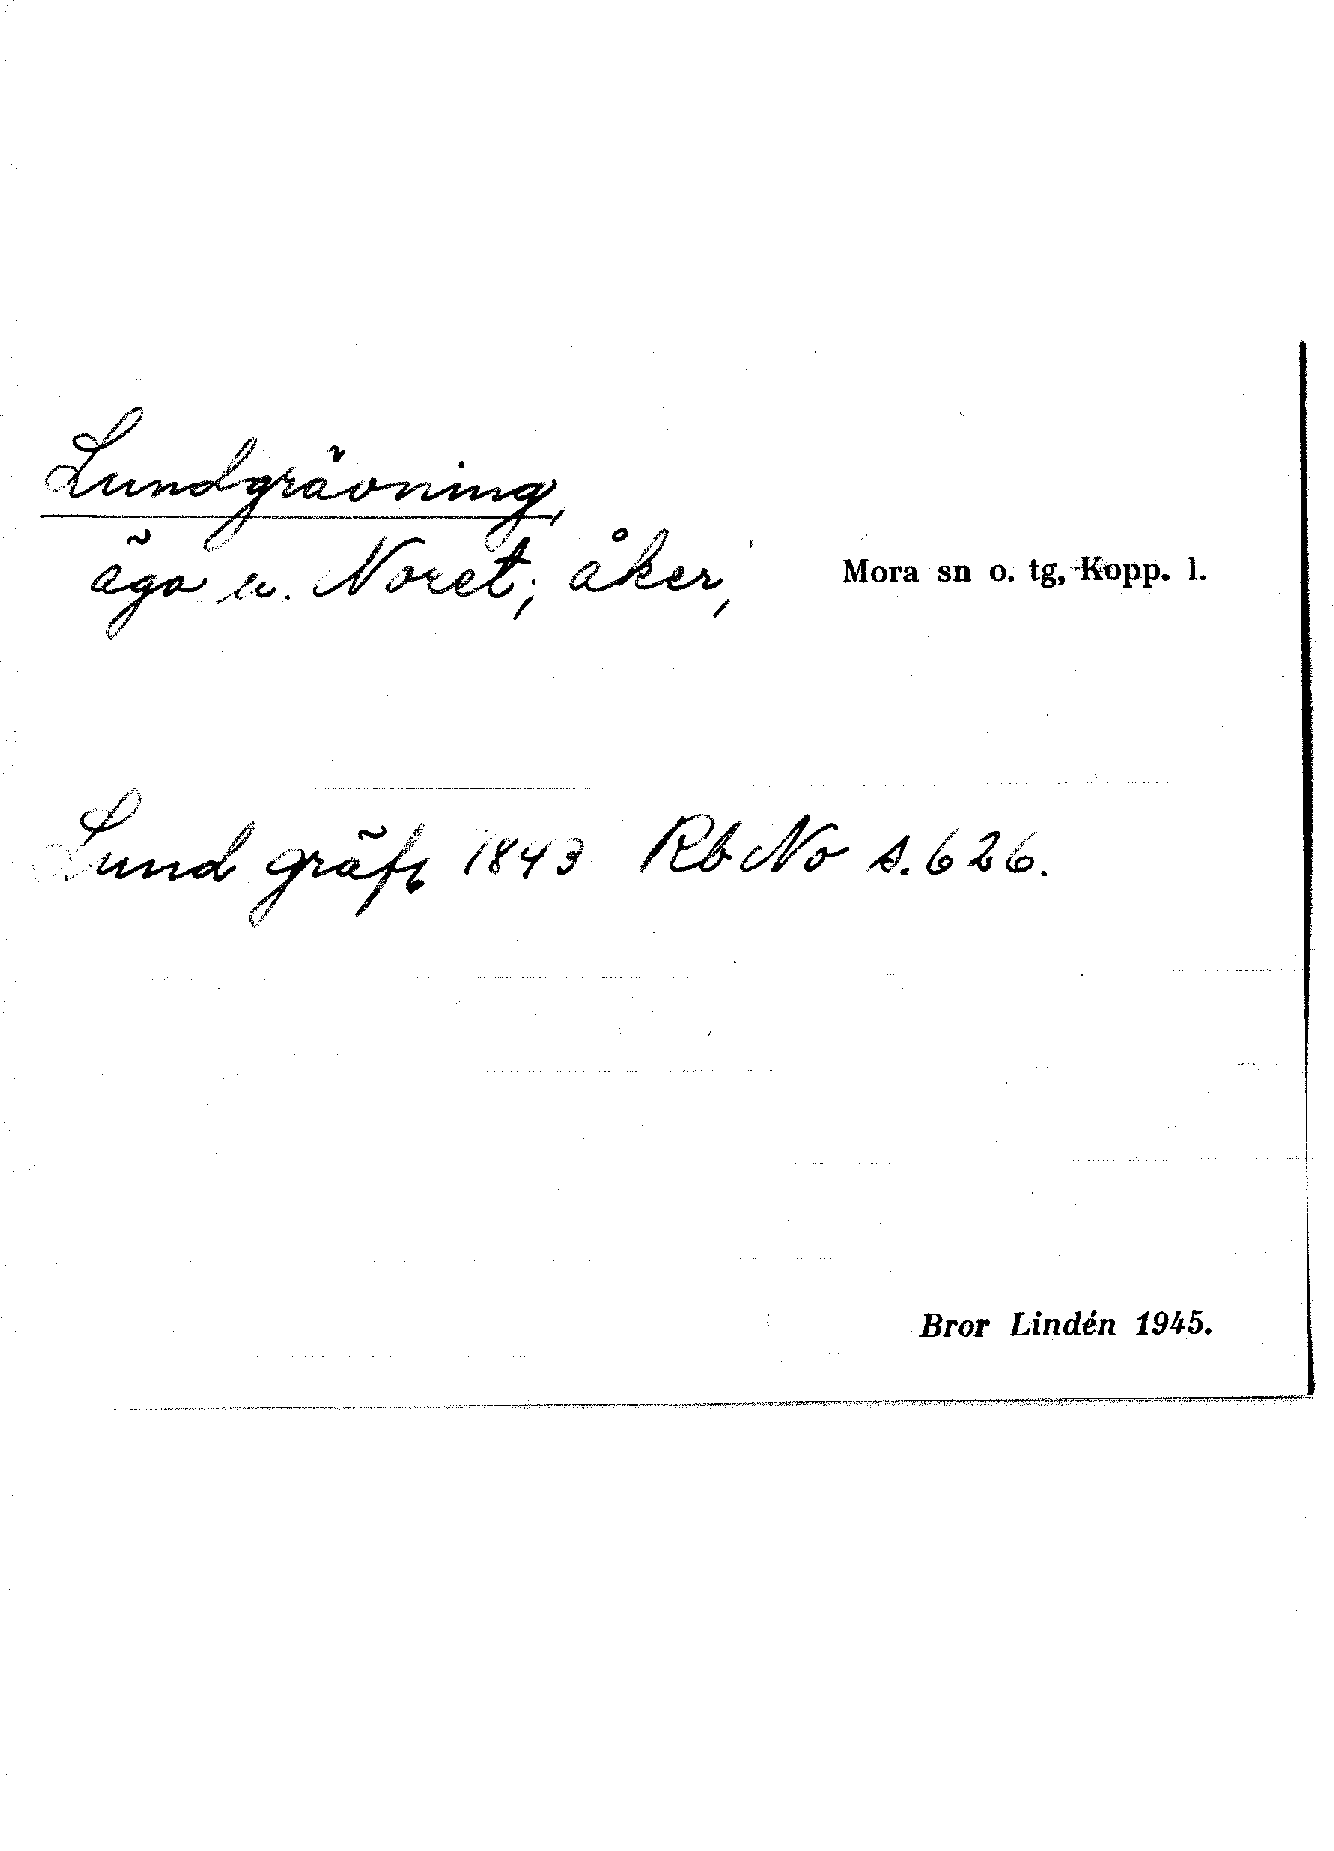 Lundgrävning,
äga u. Noret; åker, Mora sn o. tg, Kopp. l.
Lund gräfs 1843 Rb No s. 626.
Bror Lindén 1945.